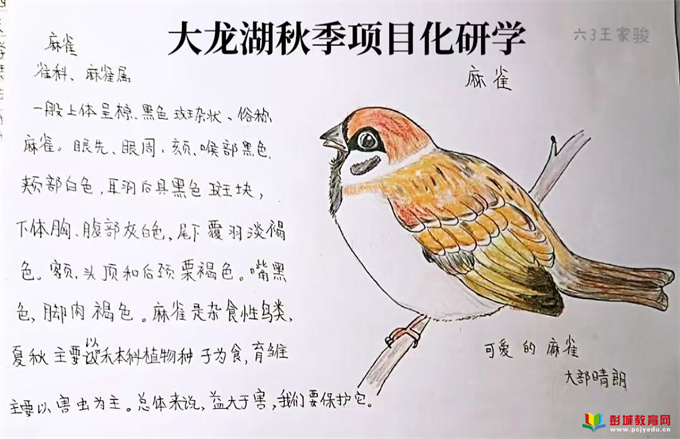 大龙湖秋季项目化研学
六3王家骏
麻雀
麻雀
雀科、麻雀属
一般上体呈棕、黑色斑杂状、俗称
麻雀。眼先、眼周、颏、喉部黑色
颊部白色,耳羽后具黑色斑块,
下体胸、腹部灰白色,尾下覆羽淡褐
色。额、头顶和后颈栗褐色。嘴黑
色,脚肉褐色。麻雀是杂食性鸟类,
夏秋主要以禾本科植物种子为食,育雏
主要以害虫为主。总体来说,益大于害,我们要保护它。
可爱的麻雀
大部晴朗
彭城教育网
www.pcjyedu.cn